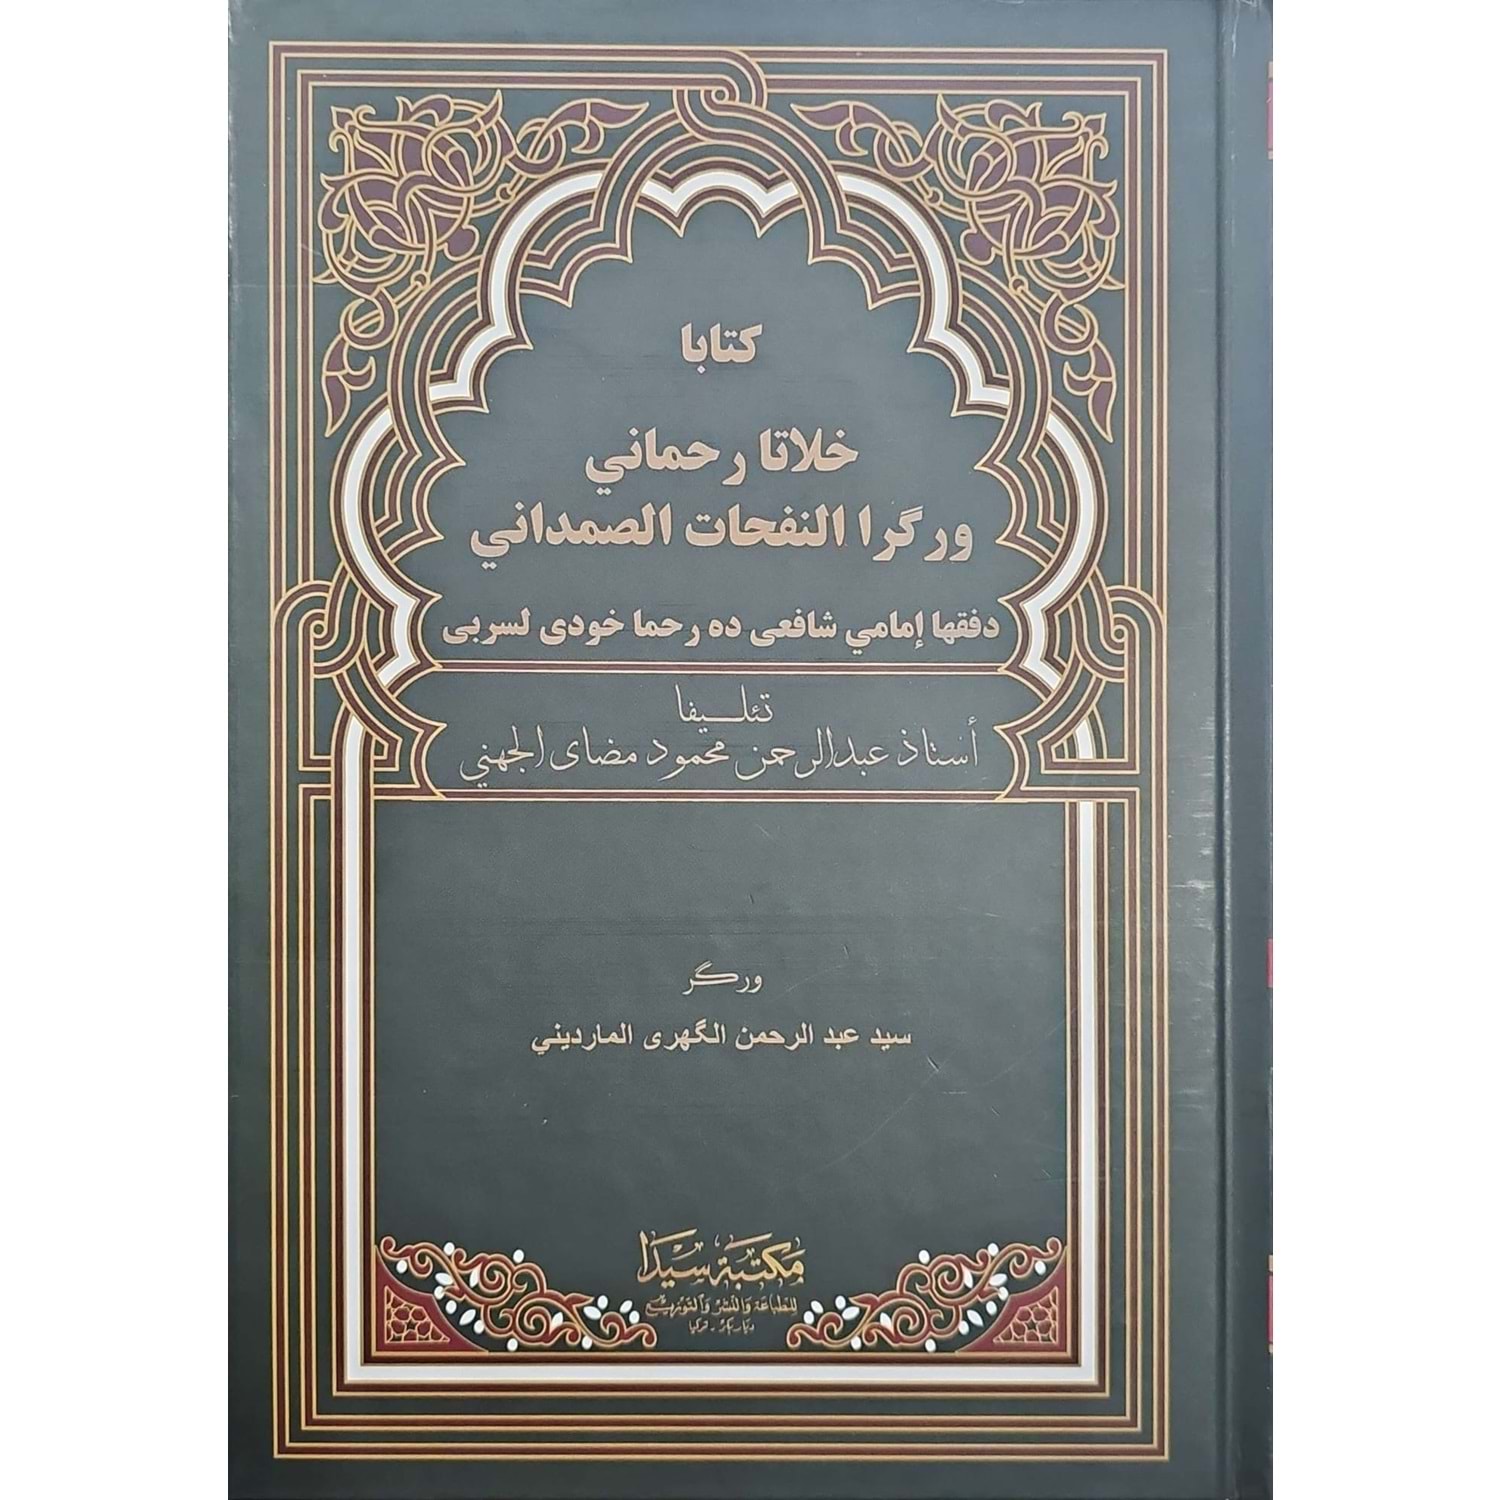 كتابا
خلاتا رحماني
ورگرا النفحات الصمداني
دفقها إمامي شافعی ده رحما خودی لسربی
تئلیفا
أستاذ عبدالرحمن محمود مضای الجهني
ورگر
سيد عبد الرحمن الگهری المارديني
مكتبة سيدا
للطباعة والنشر والتوزيع
ديار بكر - تركيا